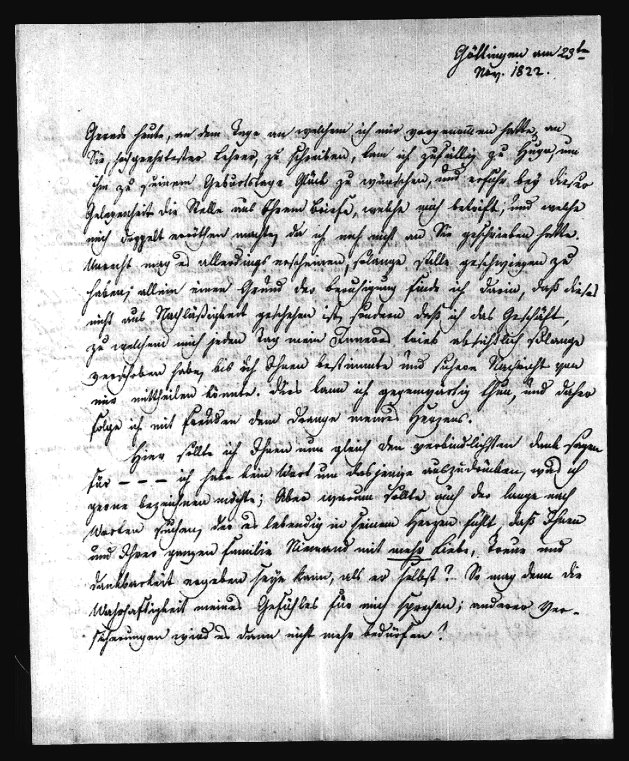 Göttingen am 23ten
Nov. 1822.
Gerade heute, an dem Tage an welchem ich mir vorgenommen hatte, an
Sie, hochgeehrtester Lehrer, zu schreiben, kam ich zufällig zu Hugo, um
ihm zu seinem Geburtstage Glück zu wünschen, und erfuhr bey dieser
Gelegenheit die Stelle aus Ihrem Briefe, welche mich betrifft, und welche
mich doppelt erröthen machte, da ich noch nicht an Sie geschrieben hatte.
Unrecht mag es allerdings erscheinen, solange stille geschwiegen zu
haben; allein einen Grund der beruhigung finde ich darin, daß dieses
nicht aus Nachläßigkeit geschehen ist, sondern daß ich das Geschäft,
zu welchem mich jeden Tag mein Inneres trieb absichtlich solange
verschoben habe, bis ich Ihnen bestimmte und sichere Nachricht von
mir mittheilen könnte. Dies kann ich gegenwärtig thun, und daher
folge ich mit Freuden dem Drange meines Herzens.
Hier sollte ich Ihnen nun gleich den verbindlichsten dank sagen
für – – – ich habe kein Wort um dasjenige auszudrücken, was ich
gerne bezeichnen möchte; Aber warum sollte auch der lange nach
Worten suchen, der es lebendig in seinem Herzen fühlt, daß Ihnen
und Ihrer ganzen Familie Niemand mit mehr Liebe, Treue und
dankbarkeit ergeben seyn kann, als er selbst? So mag denn die
Wahrhaftigkeit meines Gefühles für mich sprechen; anderer Ver-
sicherungen wird es dann nicht mehr bedürfen!